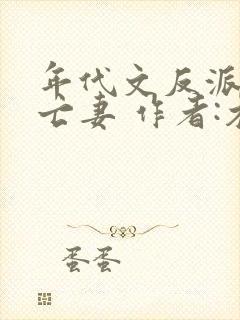 年代文反派
亡妻 作者:
蛋蛋